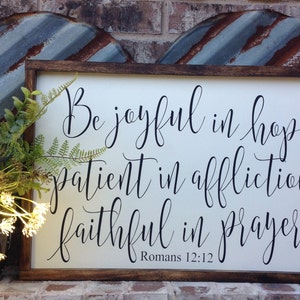 Be joyful in hop
patient in affliction
faithful in prayer
Romans 12:12